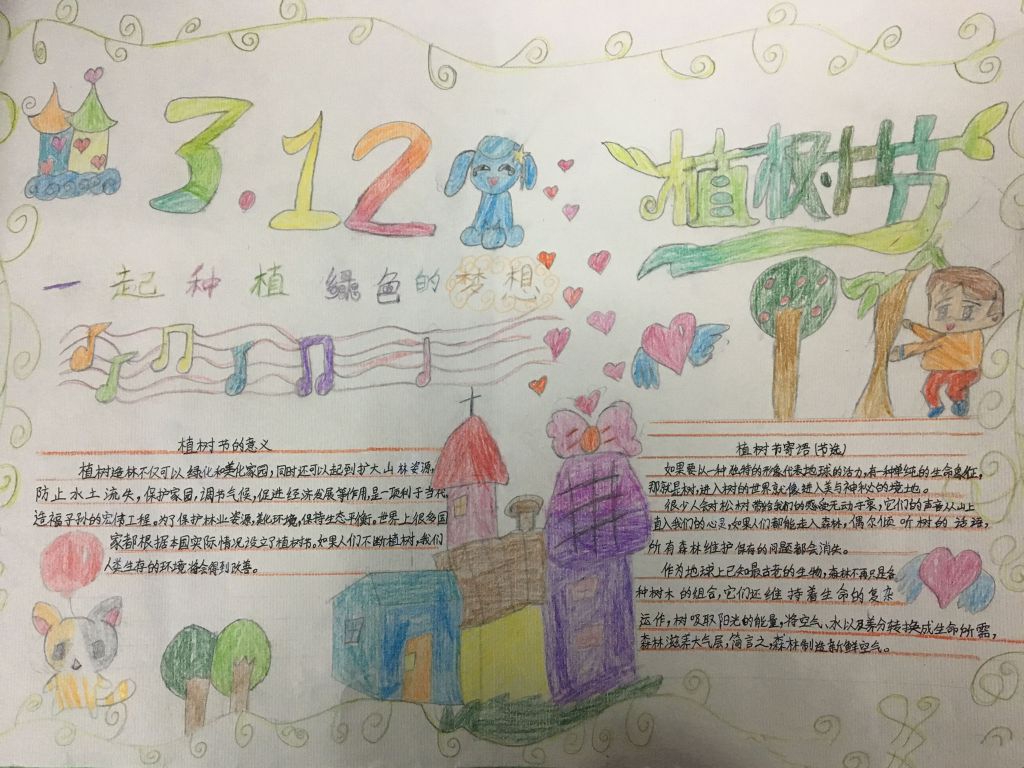 3.12
植树节
一起种植绿色的梦想
植树节的意义
植树造林不仅可以绿化和美化家园,同时还可以起到扩大山林资源,
防止水土流失,保护家园,调节气候,促进经济发展等作用,是一项利于当代,
造福子孙的宏伟工程。为了保护林业资源,美化环境,保持生态平衡。世界上很多国
家都根据本国实际情况设立了植树节。如果人们不断植树,我们
人类生存的环境将会得到改善。
植树节寄语(节选)
如果要以一种独特的形象代表地球的活力,有一种单纯的生命象征,
那就是树,进入树的世界就像进入美与神秘的境地。
很少人会对松树带给我们的感受无动于衷,它们的声音从山上
直入我们的心灵,如果人们都能走入森林,偶尔倾听树的话语,
所有森林维护保存的问题都会消失。
作为地球上已知最古老的生物,森林不再只是各
种树木的组合,它们还维持着生命的复杂
运作,树吸取阳光的能量,将空气、水以及养分转换成生命所需,
森林滋养大气层,简言之,森林制造新鲜空气。